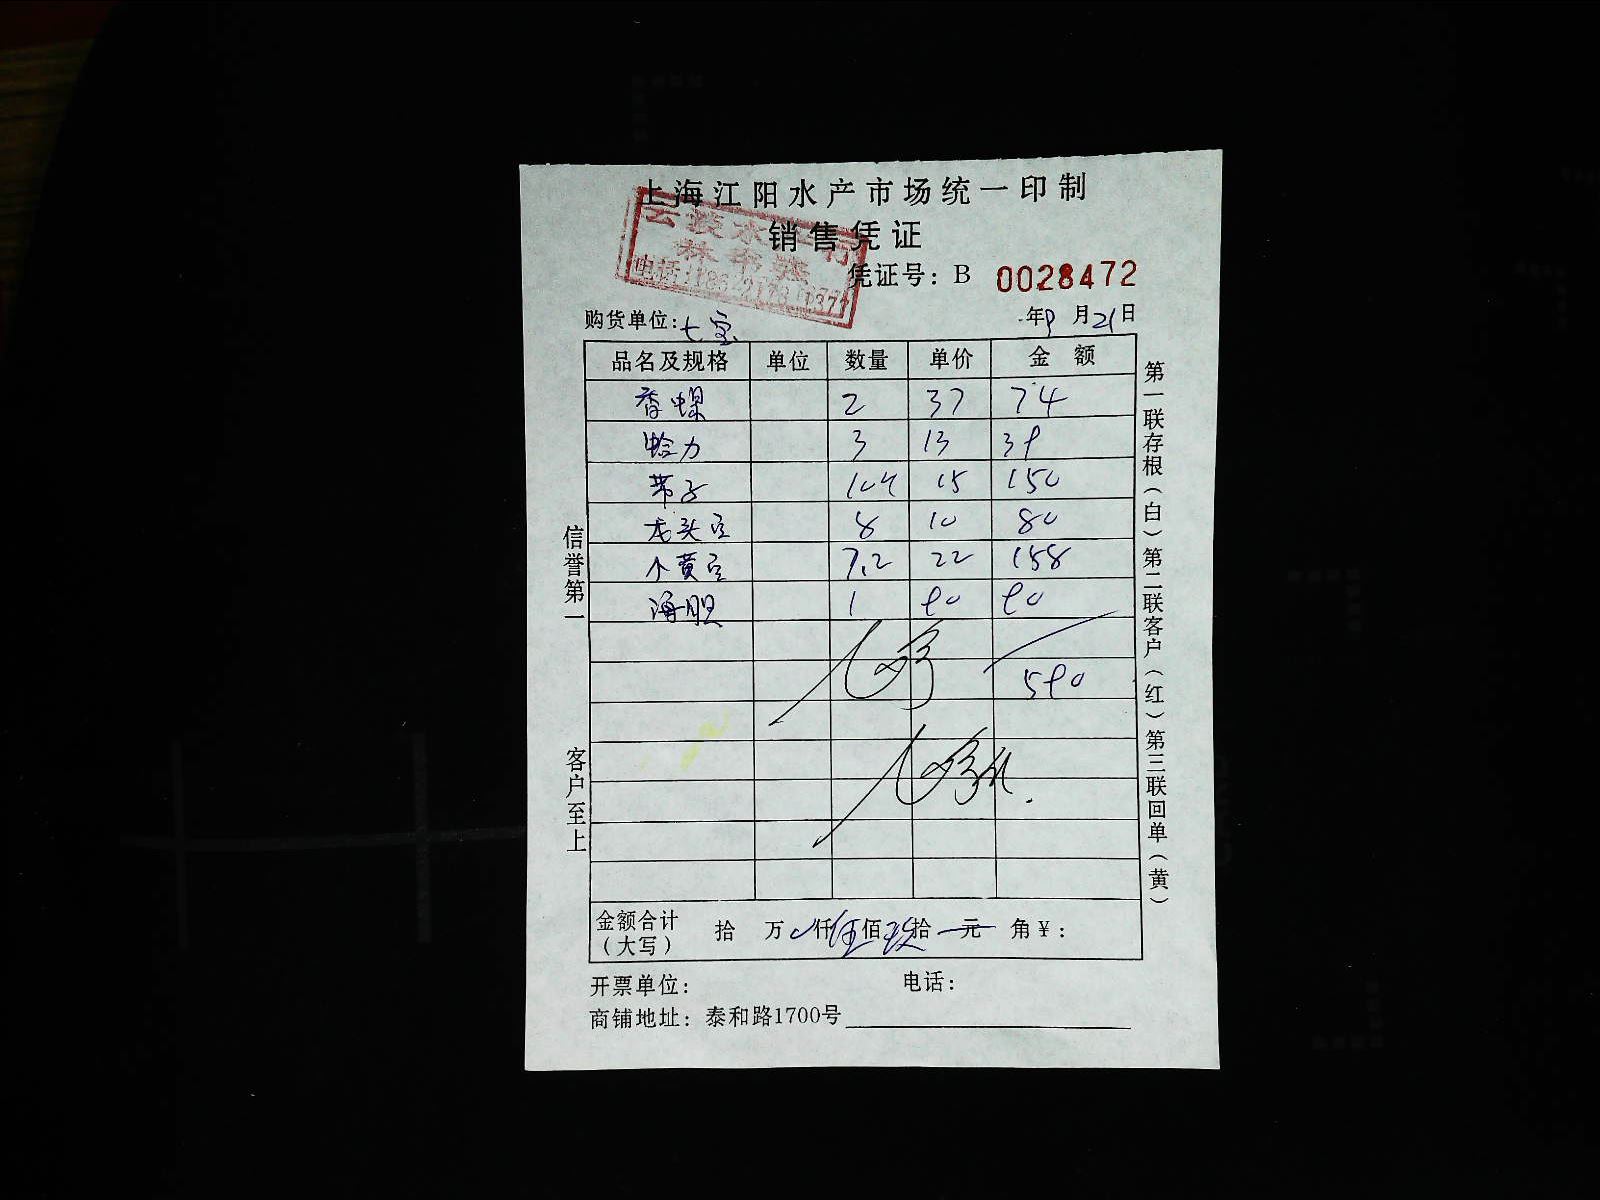 上海江阳水产市场统一印制
销售凭证
电话:18622173
凭证号: B 0028472
购货单位: 七宝 年9月21日
品名及规格 单位 数量 单价 金额
香螺 2 37 74
蛤力 3 13 39
带子 10.4 15 150
龙头豆 8 10 80
小黄豆 7.2 22 158
海胆 1 90 90
590
金额合计(大写) 拾 万 仟 伍佰 玖拾 元 角 ¥:
开票单位: 电话:
商铺地址: 泰和路1700号
信誉第一
客户至上
第一联存根(白)第二联客户(红)第三联回单(黄)